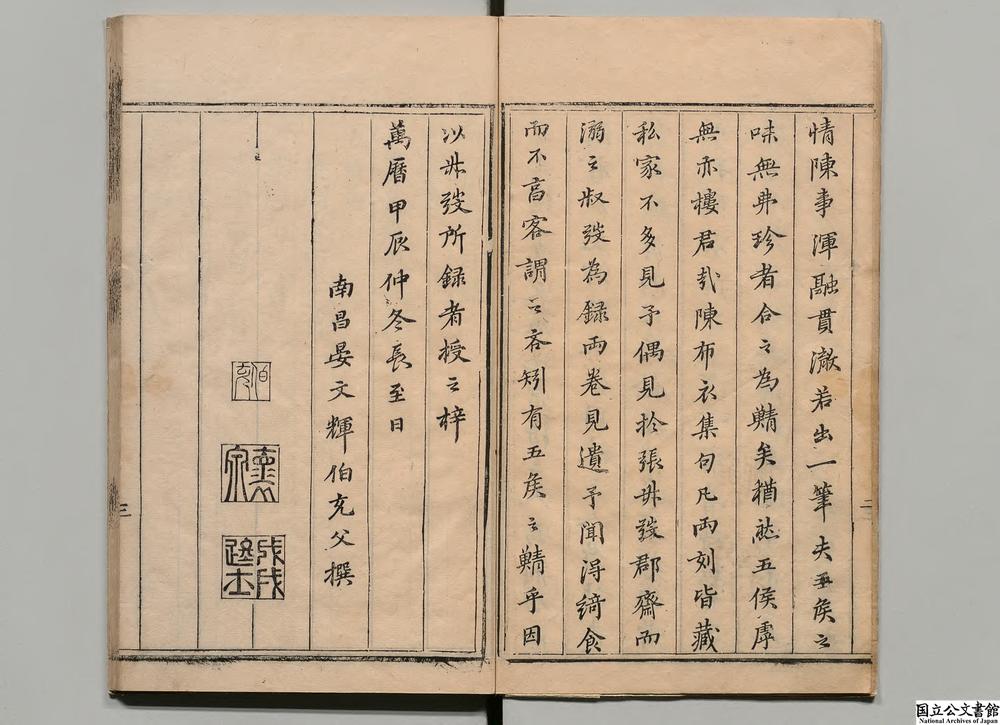 情陳事渾融貫澈若出一筆夫五侯之
味無弗珍者合之為鯖矣猶龊五侯廚
無亦樓君哉陳布衣集句凡兩刻皆藏
私家不多見予偶見於張叔弢郡齋而
溺之叔弢為録兩卷見遺予聞得綺食
而不享客謂之吝矧有五侯之鯖乎因
以叔弢所録者授之梓
萬曆甲辰仲冬長至日
南昌晏文輝伯充父撰
伯充
懷泉
戊戌進士
二
三
国立公文書館
National Archives of Japan